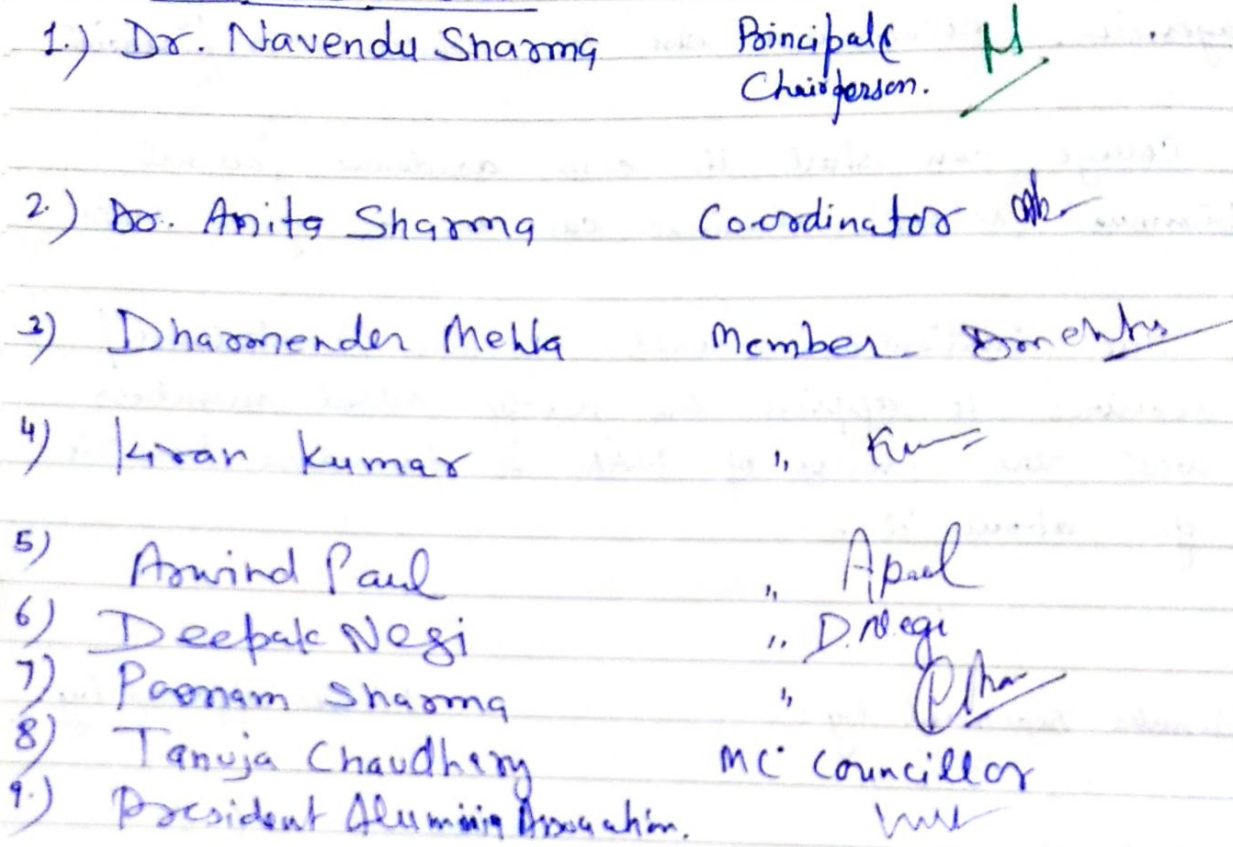 1.) Dr. Navendu Sharma Principal &
Chairperson.
2.) Dr. Anita Sharma Co-ordinator
3) Dharmender Mehta Member Dmehta
4) Kiran Kumar "
5) Arwind Paul " Apaul
6) Deepak Negi " D.Negi
7) Poonam Sharma "
8) Tanuja Chaudhery MC Councillor
9.) President Aluminia Association.